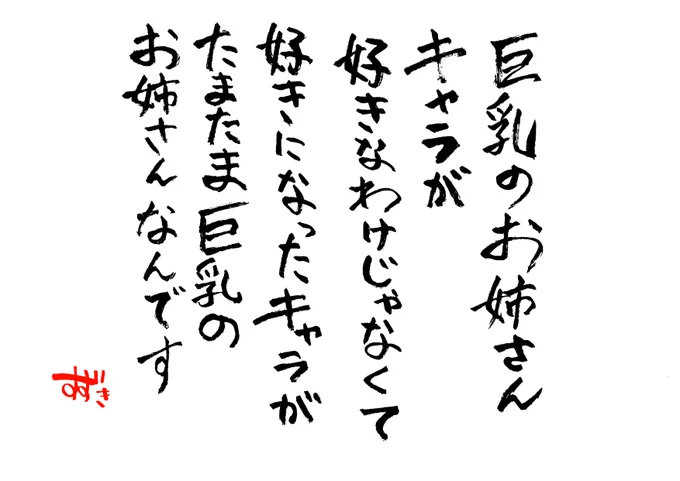 巨乳のお姉さん
キャラが
好きなわけじゃなくて
好きになったキャラが
たまたま巨乳の
お姉さんなんです